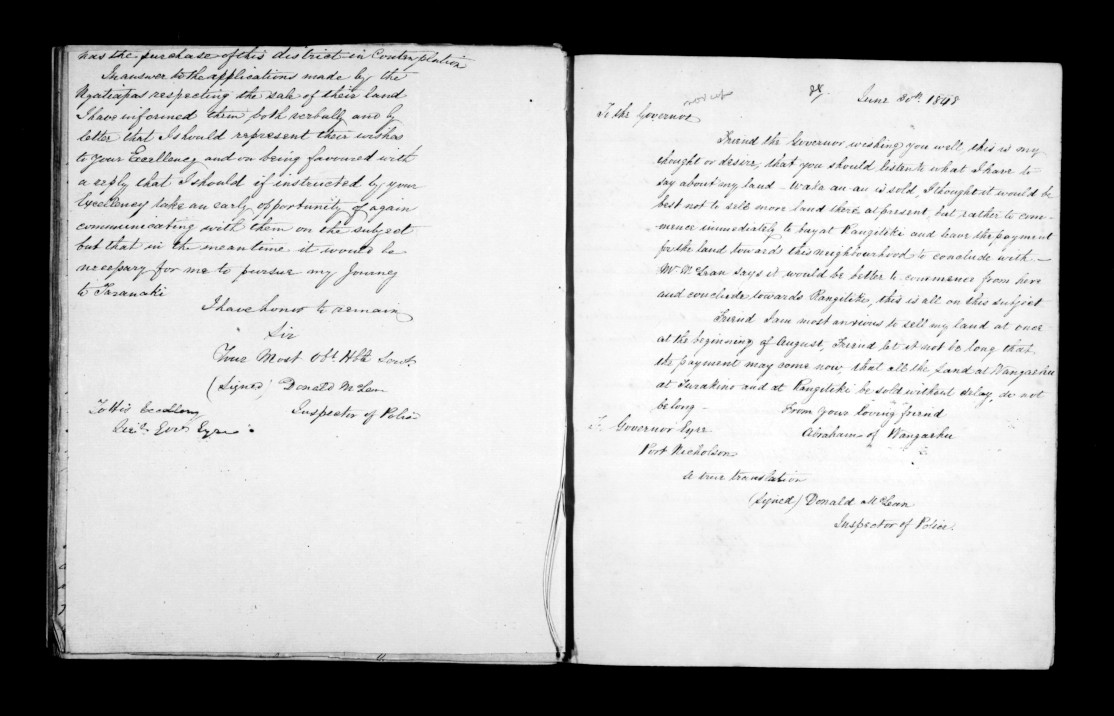 was the purchase of this district in Contemplation
In answer to the applications made by the
Ngatiapas respecting the sale of their land
I have informed them both verbally and by
letter that I should represent their wishes
to Your Excellency and on being favoured with
a reply that I should if instructed by your
Excellency take an early opportunity of again
communicating with them on the subject
but that in the meantime it would be
necessary for me to pursue my Journey
to Taranaki
I have honor to remain
Sir
Your Most Obt. Hble Servt.
(Signed) Donald McLean
Inspector of Police
To His Excellency
Lieut. Govr Eyre
June 30th. 1848
To the Governor
Friend the Governor wishing you well, this is my
thought or desire, that you should listen to what I have to
say about my land - Wata au-au is sold, I thought it would be
best not to sell more land there at present, but rather to com-
mence immediately to buy at Rangitiki and leave the payment
for the land towards this neighbourhood to conclude with.-
Mr. McLean says it would be better to commence from here
and conclude towards Rangitiki, this is all on this subject
Friend I am most anxious to sell my land at once
at the beginning of August, Friend let it not be long that
the payment may come now that all the Land at Wangaehu
at Turakina and at Rangitiki be sold without delay, do not
be long -
From your loving friend
Abraham of Wangaehu
To Governor Eyre
Port Nicholson
A true translation
(Signed) Donald McLean
Inspector of Police.